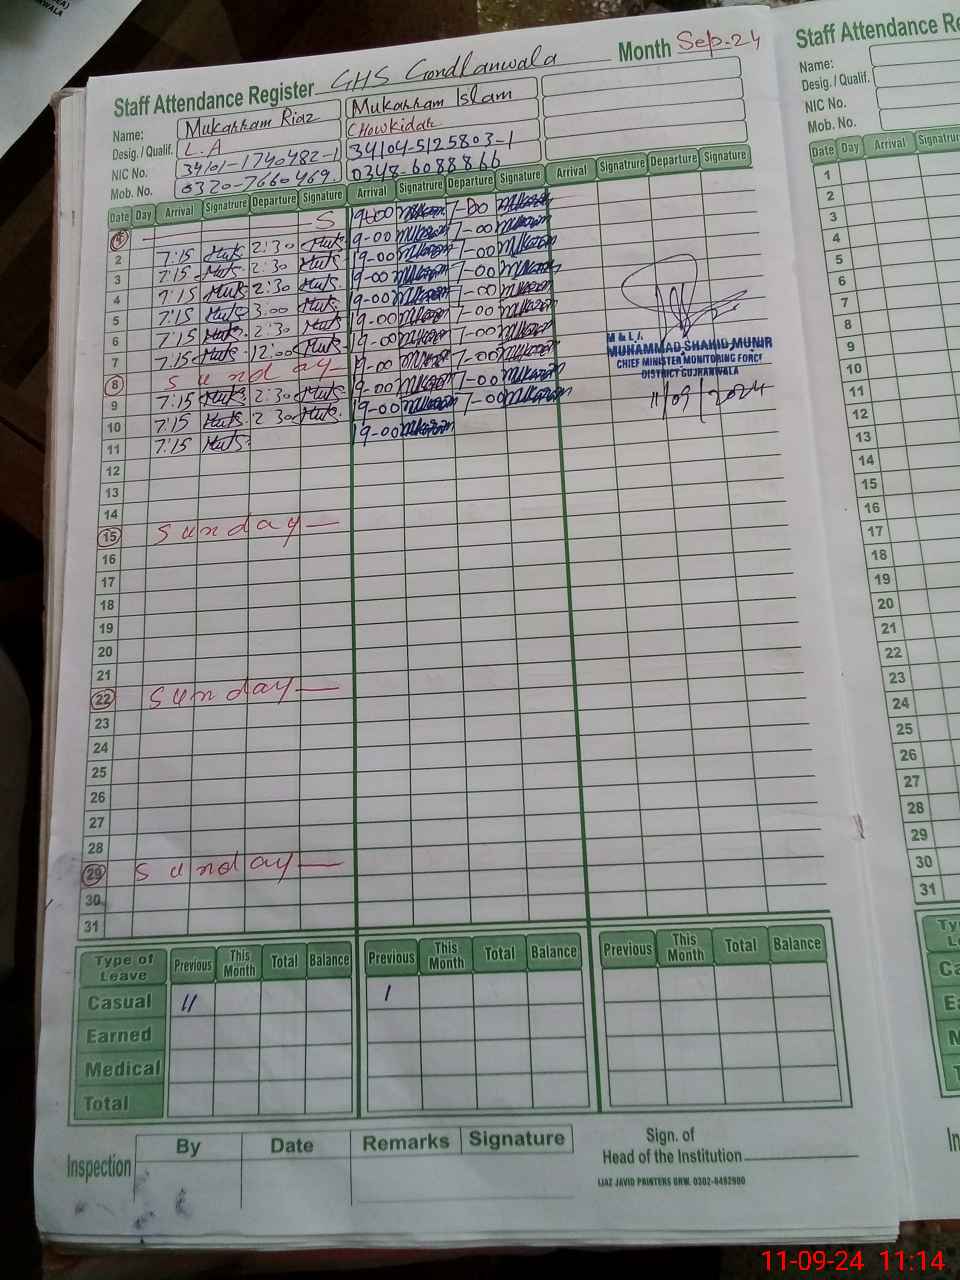 Staff Attendance Register GHS Gondlanwala Month Sep-24
Name: Mukarram Riaz Mukarram Islam
Desig. / Qualif. L.A Chowkidar
NIC No. 34101-1740482-1 34104-5125803-1
Mob. No. 0320-7660469 0348-6088866
Date Day Arrival Signatrure Departure Signature Arrival Signatrure Departure Signature Arrival Signature Departure Signature
S 19-00 7-00
2 7:15 2:30 19-00 7-00
3 7:15 2:30 19-00 7-00
4 7:15 2:30 19-00 7-00
5 7:15 3:00 19-00 7-00
6 7:15 2:30 19-00 7-00
7 7:15 12:00 19-00 7-00
8 Sunday 19-00 7-00
9 7:15 2:30 19-00 7-00
10 7:15 2:30 19-00 7-00
11 7:15 19-00
12
13
14
15 Sunday
16
17
18
19
20
21
22 Sunday
23
24
25
26
27
28
29 Sunday
30
31
MUHAMMAD SHAHID MUNIR
CHIEF MINISTER MONITORING FORCE
DISTRICT GUJRANWALA
11/09/2024
Type of Leave Previous This Month Total Balance Previous This Month Total Balance Previous This Month Total Balance
Casual 11 1
Earned
Medical
Total
Inspection By Date Remarks Signature
Sign. of
Head of the Institution
IJAZ JAVID PRINTERS GRW. 0302-6492900
Staff Attendance Re
Name:
Desig. / Qualif.
NIC No.
Mob. No.
Date Day Arrival Signatur
1
2
3
4
5
6
7
8
9
10
11
12
13
14
15
16
17
18
19
20
21
22
23
24
25
26
27
28
29
30
31
11-09-24 11:14